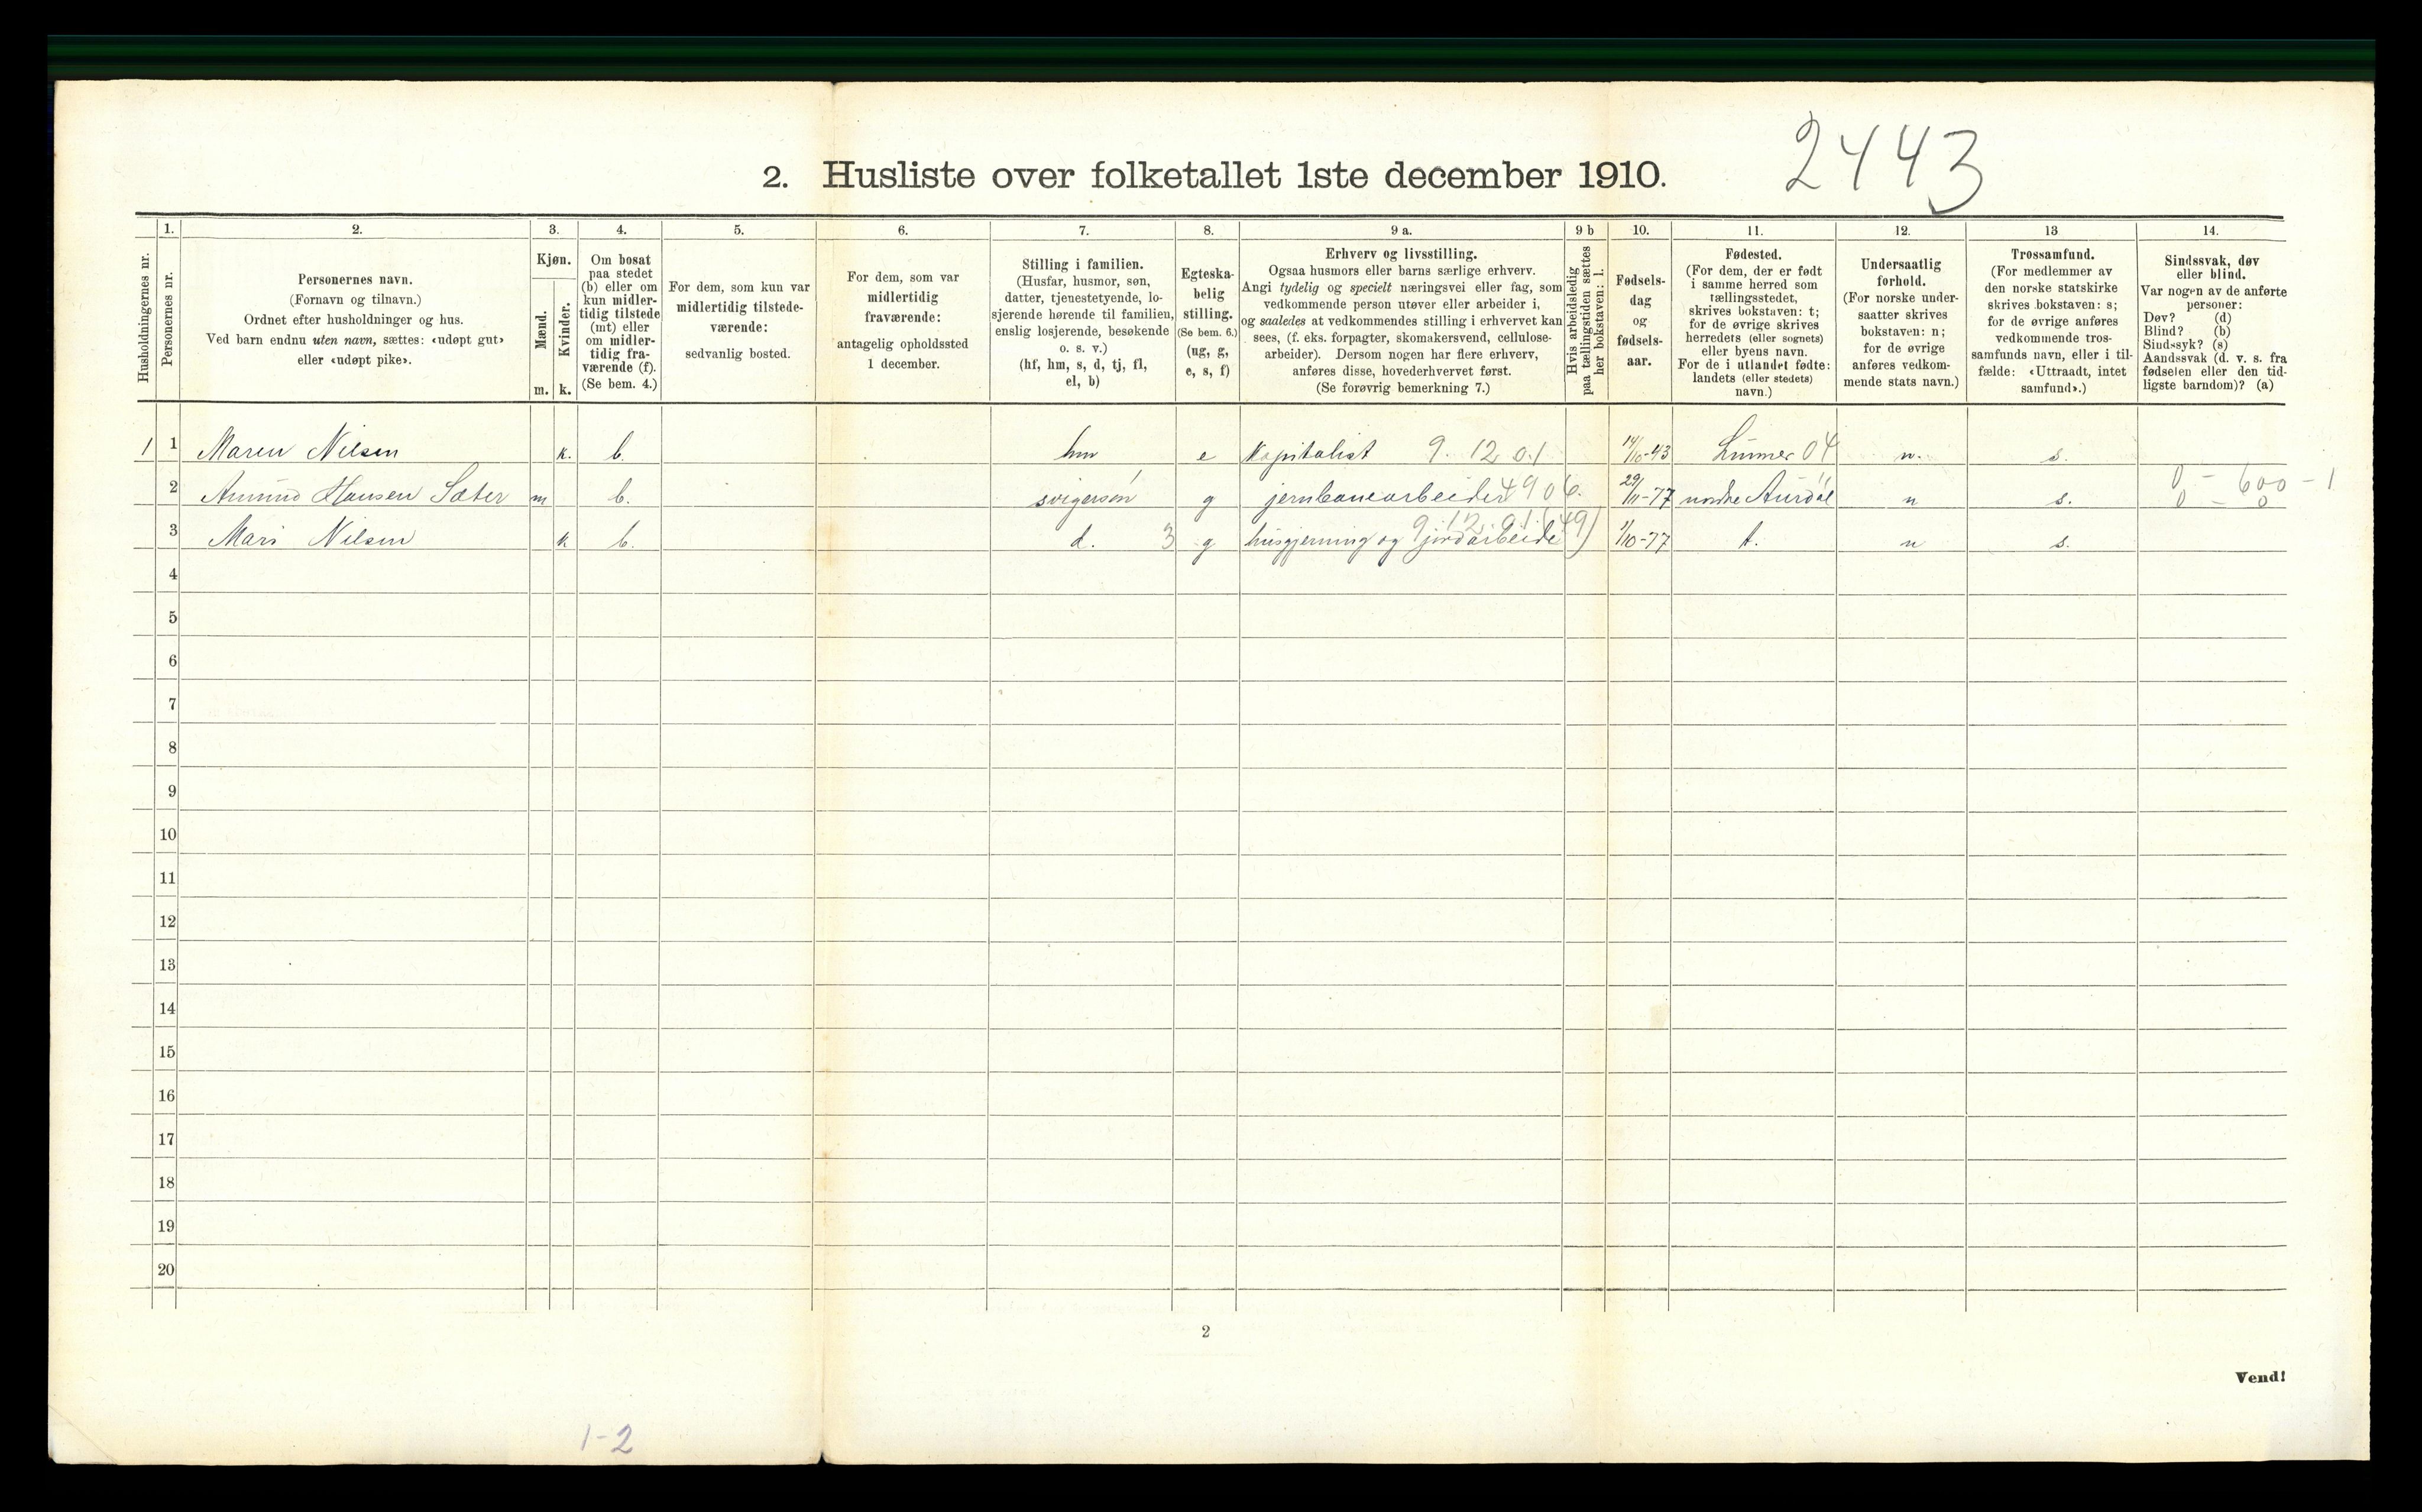 2443
2. Husliste over folketallet 1ste december 1910.
Husholdningernes nr.
1.
Personernes nr.
2.
Personernes navn.
(Fornavn og tilnavn.)
Ordnet efter husholdninger og hus.
Ved barn endnu uten navn, sættes: «udøpt gut»
eller «udøpt pike».
3.
Kjøn.
Mænd.
m.
Kvinder.
k.
4.
Om bosat
paa stedet
(b) eller om
kun midler-
tidig tilstede
(mt) eller
om midler-
tidig fra-
værende (f).
(Se bem. 4.)
5.
For dem, som kun var
midlertidig tilstede-
værende:
sedvanlig bosted.
6.
For dem, som var
midlertidig
fraværende:
antagelig opholdssted
1 december.
7.
Stilling i familien.
(Husfar, husmor, søn,
datter, tjenestetyende, lo-
sjerende hørende til familien,
enslig losjerende, besøkende
o. s. v.)
(hf, hm, s, d, tj, fl,
el, b)
8.
Egteska-
belig
stilling.
(Se bem. 6.)
(ug, g,
e, s, f)
9 a.
Erhverv og livsstilling.
Ogsaa husmors eller barns særlige erhverv.
Angi tydelig og specielt næringsvei eller fag, som
vedkommende person utøver eller arbeider i,
og saaledes at vedkommendes stilling i erhvervet kan
sees, (f. eks. forpagter, skomakersvend, cellulose-
arbeider). Dersom nogen har flere erhverv,
anføres disse, hovederhvervet først.
(Se forøvrig bemerkning 7.)
9 b
Hvis arbeidsledig
paa tællingstiden sættes
her bokstaven: l.
10.
Fødsels-
dag
og
fødsels-
aar.
11.
Fødested.
(For dem, der er født
i samme herred som
tællingsstedet,
skrives bokstaven: t;
for de øvrige skrives
herredets (eller sognets)
eller byens navn.
For de i utlandet fødte:
landets (eller stedets)
navn.)
12.
Undersaatlig
forhold.
(For norske under-
saatter skrives
bokstaven: n;
for de øvrige
anføres vedkom-
mende stats navn.)
13
Trossamfund.
(For medlemmer av
den norske statskirke
skrives bokstaven: s;
for de øvrige anføres
vedkommende tros-
samfunds navn, eller i til-
fælde: «Uttraadt, intet
samfund».)
14.
Sindssvak, døv
eller blind.
Var nogen av de anførte
personer:
Døv? (d)
Blind? (b)
Sindssyk? (s)
Aandssvak (d. v. s. fra
fødselen eller den tid-
ligste barndom)? (a)
1 1 Maren Nilsen k. b. hm e Kapitalist 9. 12 01 14/10-43 Lunner 04 n. s.
2 Amund Hansen Sæter m b. svigersøn g jernbanearbeider 4906. 29/11-77 nordre Aurdal n s. 0 - 600 - 1
0 - 0
3 Mari Nilsen k b. d. 3 g husgjerning og jordarbeide 9.12.01 (49) 1/10-77 t. n s.
4
5
6
7
8
9
10
11
12
13
14
15
16
17
18
19
20
2
Vend!
1-2